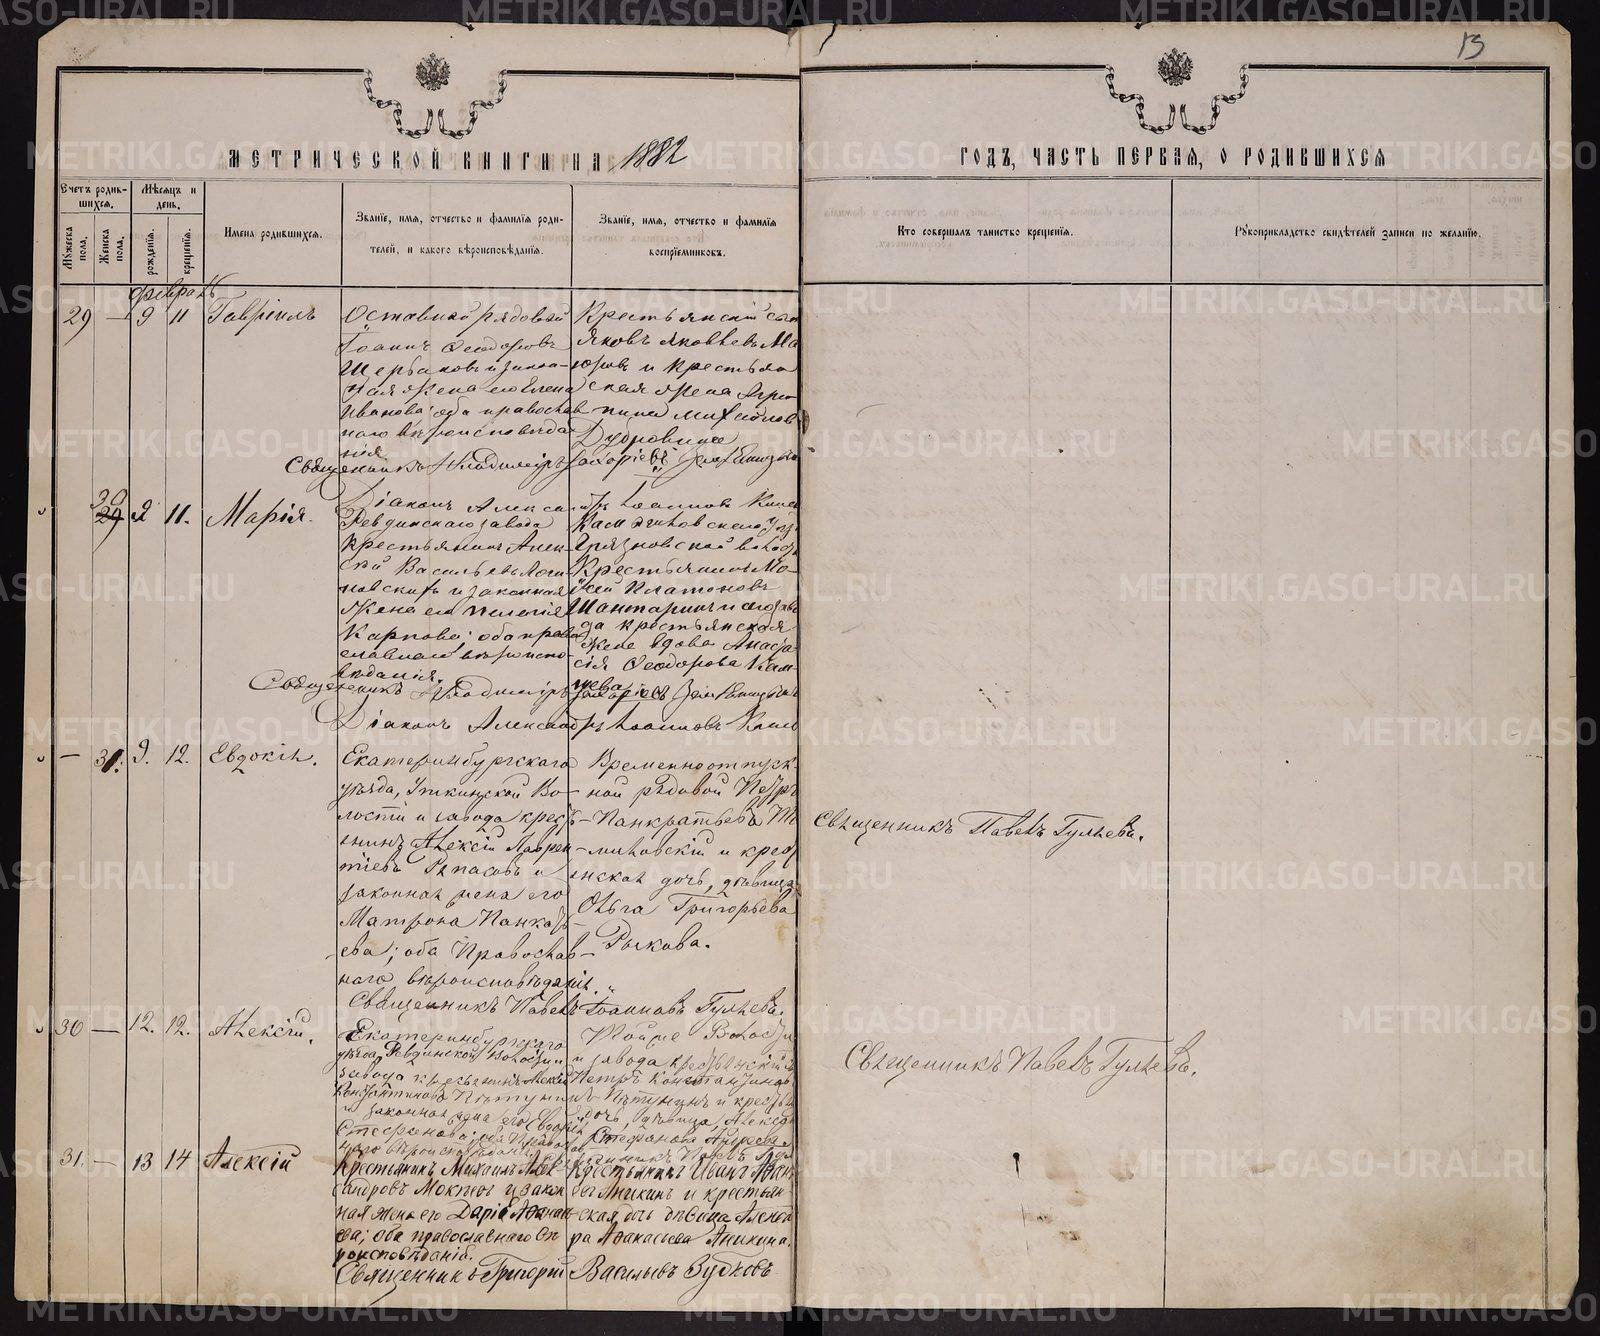 13
МЕТРИЧЕСКОЙ КНИГИ НА 1882
ГОДЪ, ЧАСТЬ ПЕРВАЯ, О РОДИВШИХСЯ
Счетъ родившихся.
Мужеска пола.
Женска пола.
Мѣсяцъ и день.
рожденія.
крещенія.
Имена родившихся.
Званіе, имя, отчество и фамилія родителей, и какого вѣроисповѣданія.
Званіе, имя, отчество и фамилія воспріемниковъ.
Кто совершалъ таинство крещенія.
Рукоприкладство свидѣтелей записи по желанію.
февраль
29 — 9 11 Гавріилъ
Отставной рядовой
Іоаннъ Ѳеодоровъ
Щербаковъ и закон-
ная жена его Елена
Иванова; оба православ
наго вѣроисповѣда
нія
Крестьянскій сын
Яковъ Яковлевъ Ма
зуровъ и крестьян
ская жена Агри-
пина Михайлов
Дубровина
Священникъ Владиміръ Захаріевъ
Діаконъ Александръ Іоанновъ
30 9 11. Марія.
Ревдинскаго завода
Крестьянинъ Алек-
сѣй Васильевъ
и законная
жена его Пелагія
Карпова; оба право
славнаго вѣроиспо-
вѣданія.
Камышловскаго уѣз
Грязновской волос
Крестьянинъ Мо-
сей Платоновъ
Шантаринъ и заво
да крестьянская
жена вдова Анаста
сія Ѳеодорова Кам-
Священникъ Владиміръ Захаріевъ
Діаконъ Александръ Іоанновъ
— 31. 9. 12. Евдокія.
Екатеринбургскаго
уѣзда, Уткинской Во-
лости и завода крест-
янинъ Алексій Лаврен-
тіевъ и
законная жена его
Матрона Панкрать-
ева; оба Православ-
наго вѣроисповѣданія.
Временноотпуск
ной рядовой Петръ
Панкратьевъ
и крест
янская дочь, дѣвица
Ольга Григорьева
Рыкова.
Священникъ Павелъ Гуляевъ.
Священникъ Павелъ Іоанновъ Гуляевъ.
30 — 12. 12. Алексій.
Екатеринбургскаго
уѣзда, Ревдинской Волости и
завода крестьянинъ Алексій
Константиновъ
и законная жена его Евдокія
Стефанова; оба Православ
наго вѣроисповѣданія
Тойже Волости
и завода крестьянскій
Петръ Константиновъ
и крестьян
дочь, дѣвица, Александ
Стефанова Андреева
Священникъ Павелъ Гуляевъ.
Священникъ Павелъ Гуляевъ.
31. — 13 14 Алексій
Крестьянинъ Михаилъ Алек-
сандровъ и закон
ная жена его Дарія
ева; оба православнаго вѣ
роисповѣданія.
Крестьянинъ Иванъ Иван
овъ Аникинъ и крестьян-
ская дочь дѣвица Александ
ра Аѳанасьева Аникина.
Священникъ Григорій Васильевъ Будковъ
METRIKI.GASO-URAL.RU